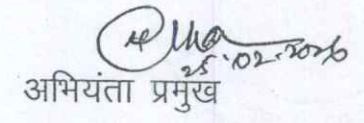 25.02.2026
अभियंता प्रमुख